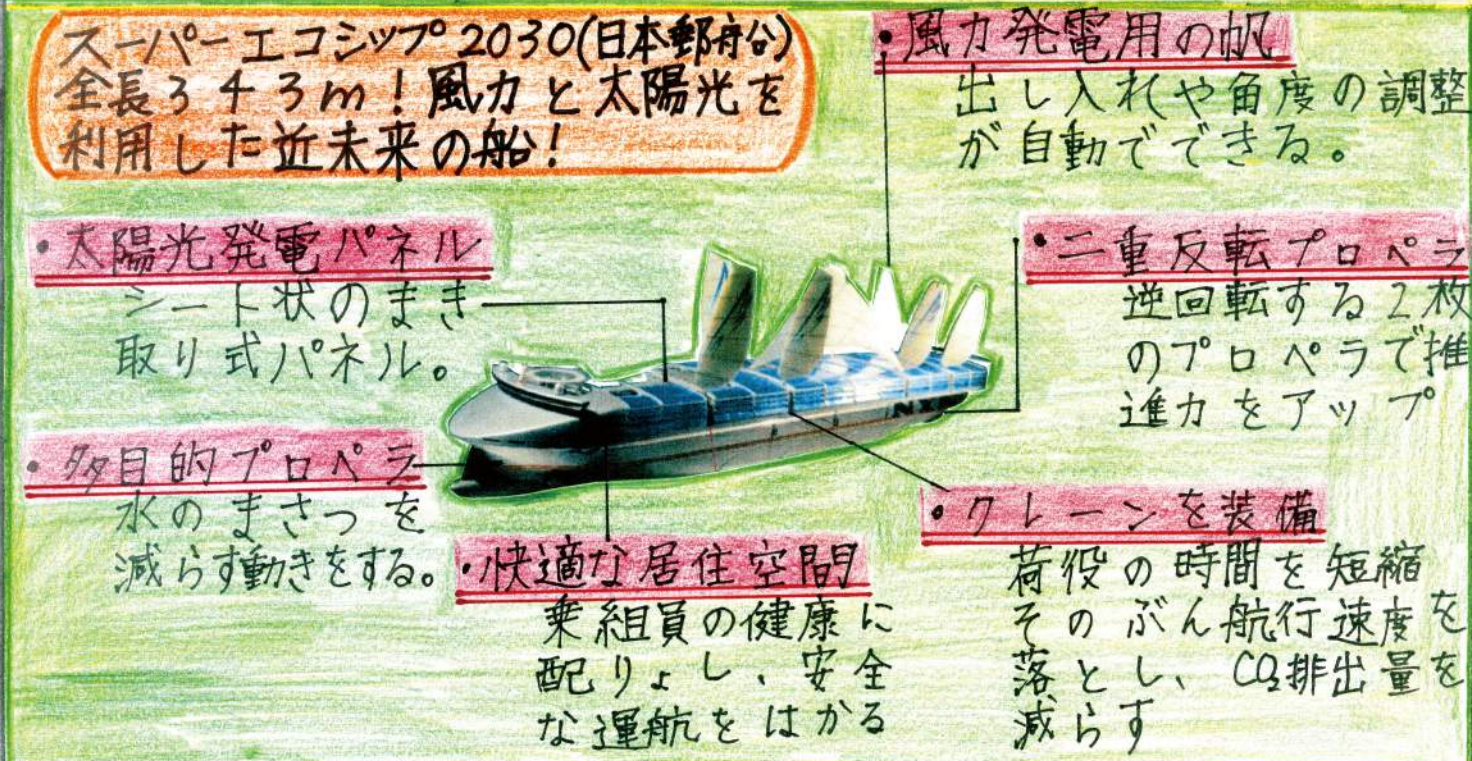 スーパーエコシップ2030(日本郵船公)
全長343m!風力と太陽光を
利用した近未来の船!
・風力発電用の帆
出し入れや角度の調整
が自動でできる。
・太陽光発電パネル
シート状のまき
取り式パネル。
・二重反転プロペラ
逆回転する2枚
のプロペラで推
進力をアップ
・多目的プロペラ
水のまさつを
減らす動きをする。
・快適な居住空間
乗組員の健康に
配りょし、安全
な運航をはかる
・クレーンを装備
荷役の時間を短縮
そのぶん航行速度を
落とし、CO2排出量を
減らす